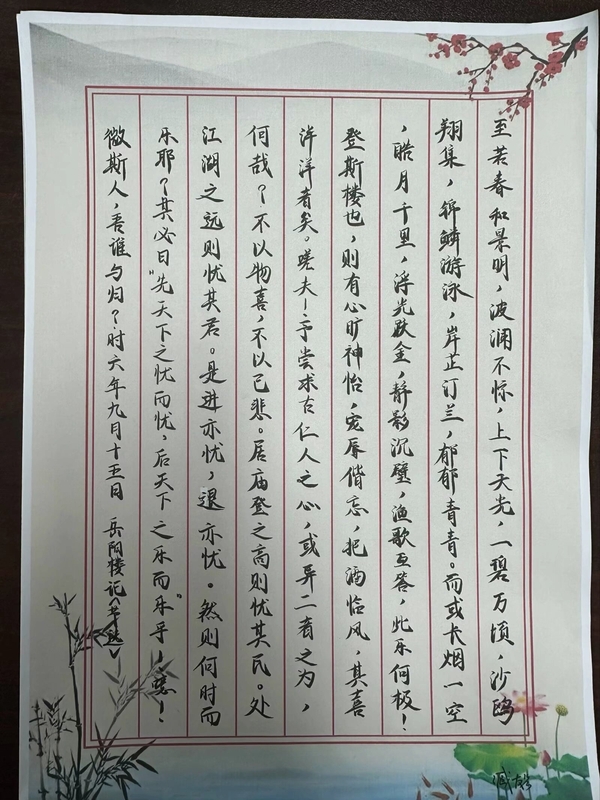 至若春和景明，波澜不惊，上下天光，一碧万顷，沙鸥
翔集，锦鳞游泳，岸芷汀兰，郁郁青青。而或长烟一空
，皓月千里，浮光跃金，静影沉璧，渔歌互答，此乐何极！
登斯楼也，则有心旷神怡，宠辱偕忘，把酒临风，其喜
洋洋者矣。嗟夫！予尝求古仁人之心，或异二者之为，
何哉？不以物喜，不以己悲。居庙登之高则忧其民。处
江湖之远则忧其君。是进亦忧，退亦忧。然则何时而
乐耶？其必曰“先天下之忧而忧，后天下之乐而乐”乎，噫！
微斯人，吾谁与归？时六年九月十五日 岳阳楼记〈节选〉